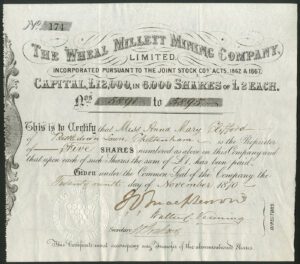 No. 174
THE WHEAL MILLETT MINING COMPANY,
LIMITED.
INCORPORATED PURSUANT TO THE JOINT STOCK COYS ACTS, 1862 & 1867.
CAPITAL, £12,000, IN 6,000 SHARES OF £2 EACH.
Nos 5891 to 5895
This is to Certify that Miss Anna Mary
Cheltenham is the Proprietor
of Five SHARES numbered as above in this Company and
that upon each of such Shares the sum of £1 has been paid.
Given under the Common Seal of the Company the
day of November 1870
Secretary
This Certificate must accompany any Transfer of the abovementioned Shares.